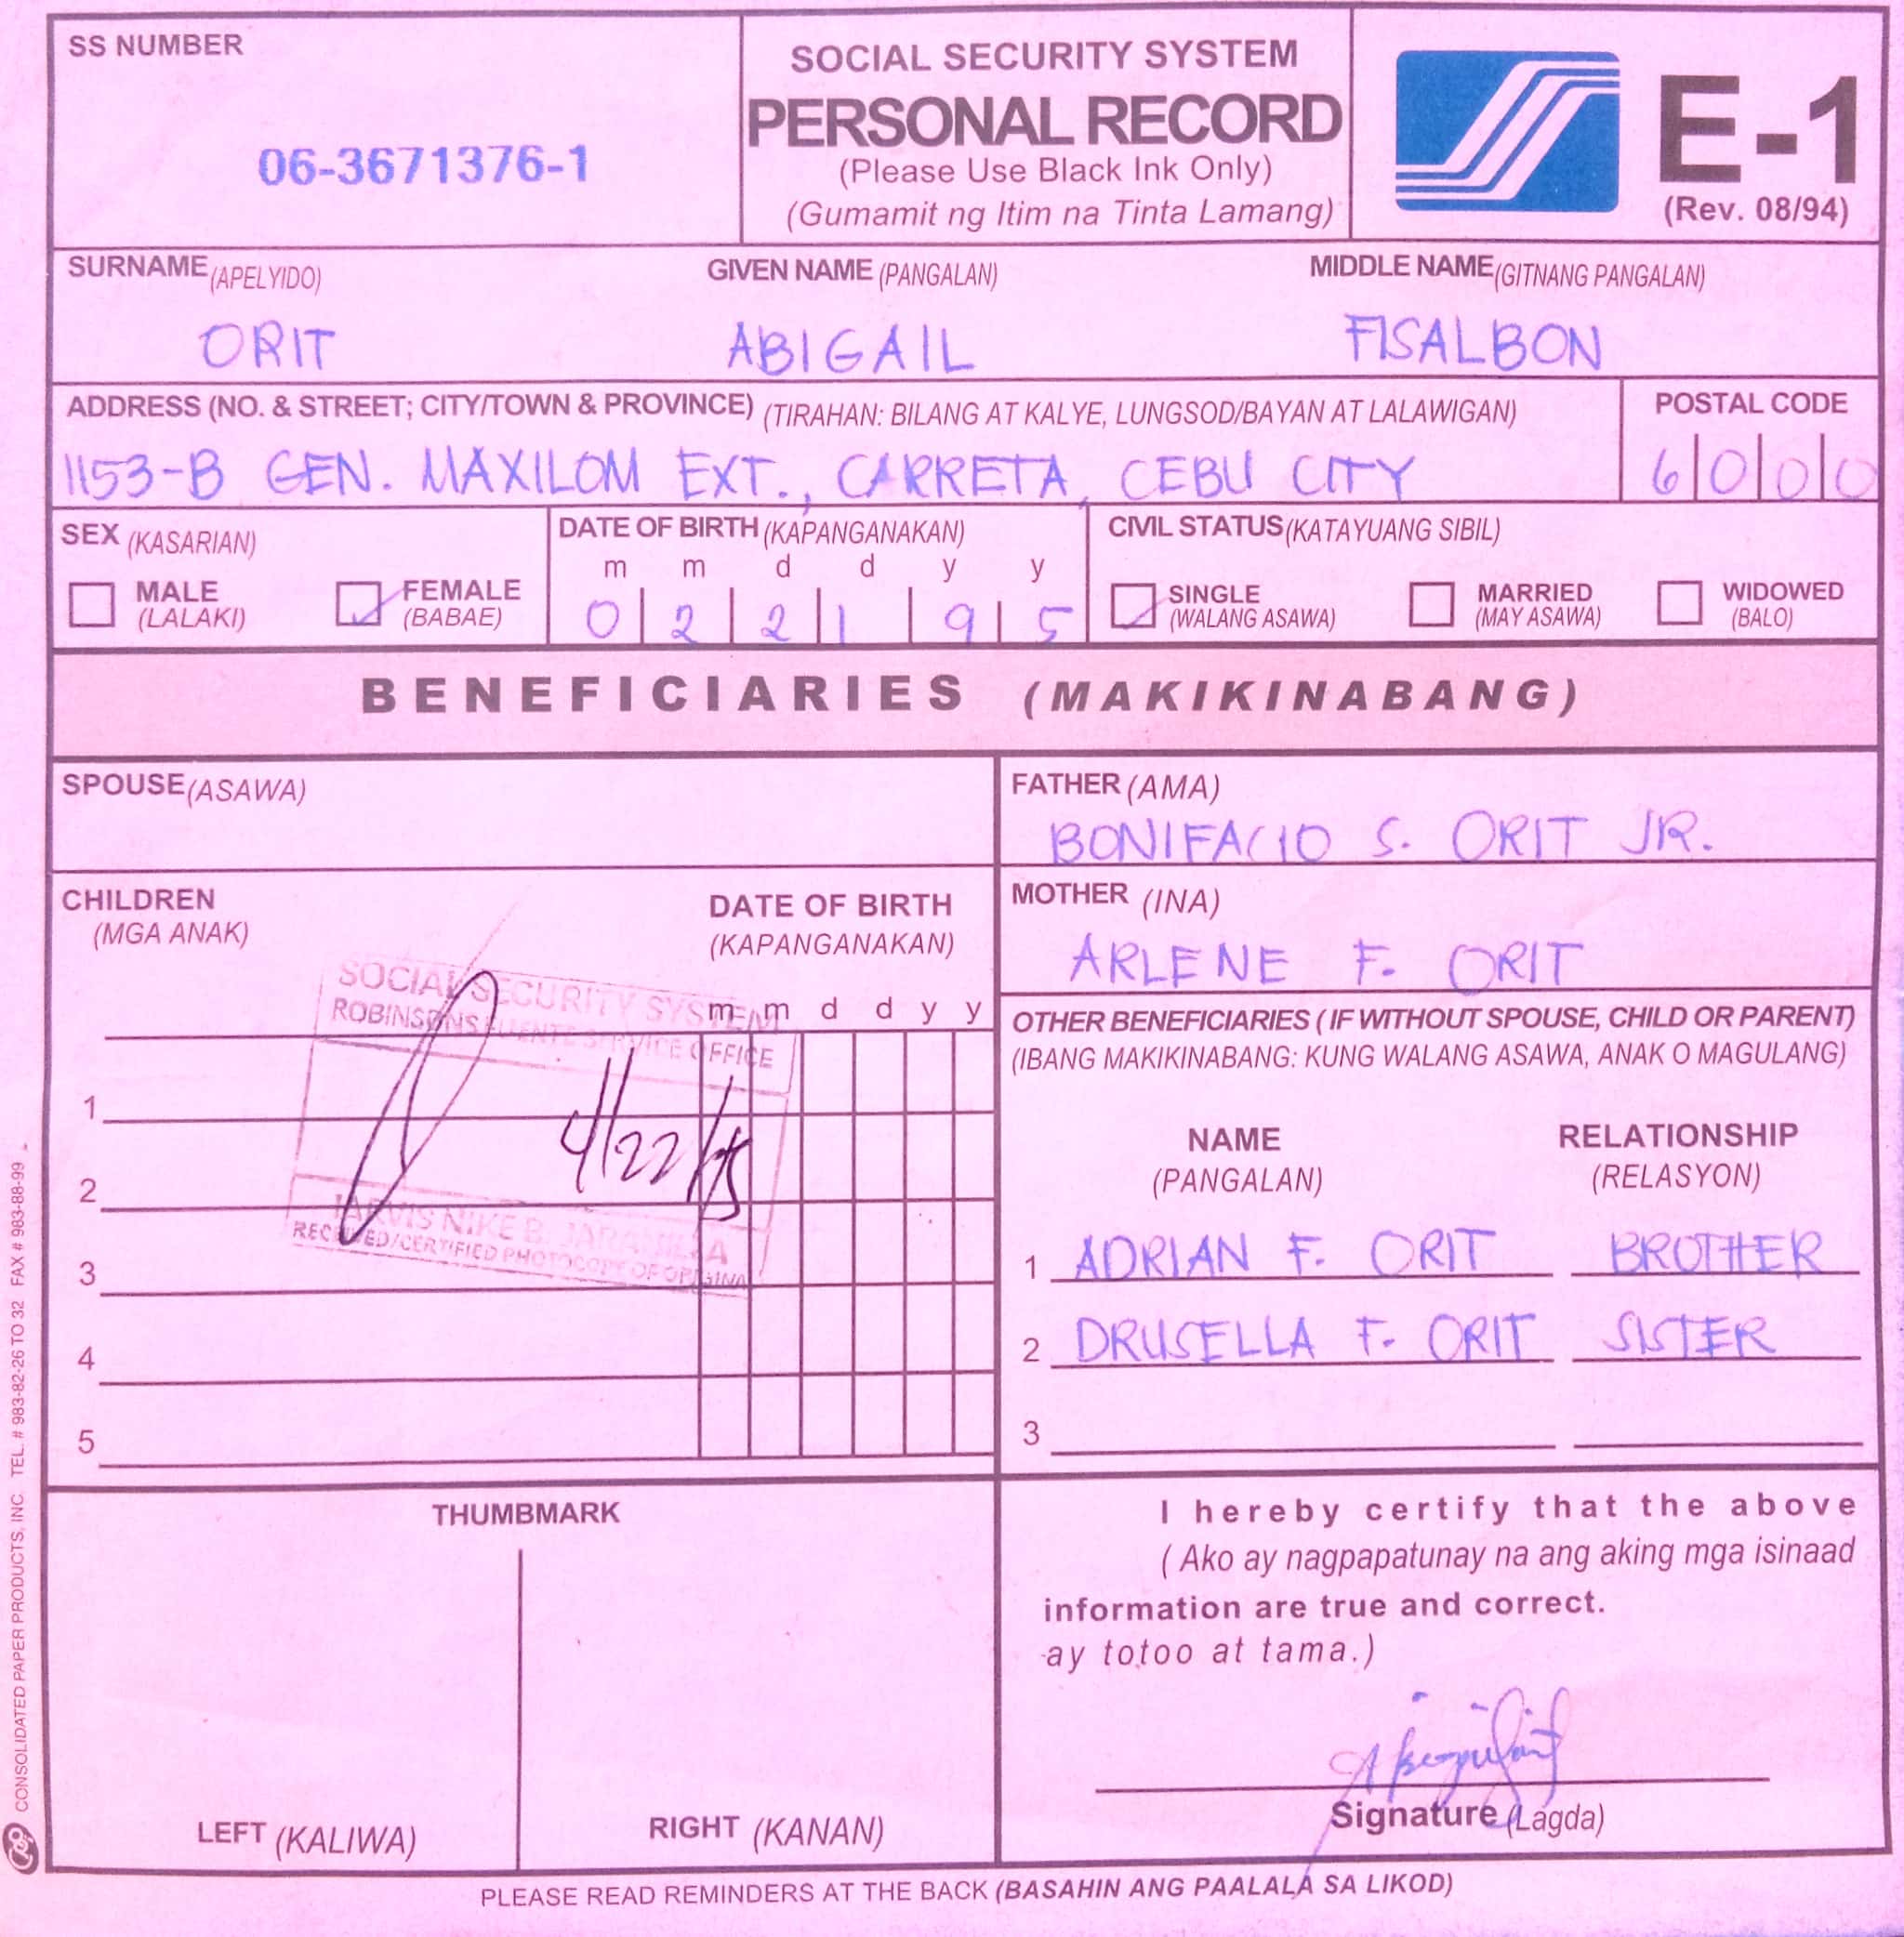 SS NUMBER
06-3671376-1
SOCIAL SECURITY SYSTEM
PERSONAL RECORD
(Please Use Black Ink Only)
(Gumamit ng Itim na Tinta Lamang)
E-1
(Rev. 08/94)
SURNAME (APELYIDO) GIVEN NAME (PANGALAN) MIDDLE NAME (GITNANG PANGALAN)
ORIT ABIGAIL FISALBON
ADDRESS (NO. & STREET; CITY/TOWN & PROVINCE) (TIRAHAN: BILANG AT KALYE, LUNGSOD/BAYAN AT LALAWIGAN) POSTAL CODE
1153-B GEN. MAXILOM EXT., CARRETA, CEBU CITY 6000
SEX (KASARIAN)
MALE (LALAKI)
FEMALE (BABAE)
DATE OF BIRTH (KAPANGANAKAN)
m m d d y y
0 2 2 1 9 5
CIVIL STATUS (KATAYUANG SIBIL)
SINGLE (WALANG ASAWA)
MARRIED (MAY ASAWA)
WIDOWED (BALO)
BENEFICIARIES (MAKIKINABANG)
SPOUSE (ASAWA)
FATHER (AMA)
BONIFACIO S. ORIT JR.
CHILDREN
(MGA ANAK)
DATE OF BIRTH
(KAPANGANAKAN)
m m d d y y
1
2
3
4
5
SOCIAL SECURITY SYSTEM
ROBINSONS FUENTE SERVICE OFFICE
4/22/15
JARVIS NIKE B.
RECEIVED/CERTIFIED PHOTOCOPY OF ORIGINAL
MOTHER (INA)
ARLENE F. ORIT
OTHER BENEFICIARIES (IF WITHOUT SPOUSE, CHILD OR PARENT)
(IBANG MAKIKINABANG: KUNG WALANG ASAWA, ANAK O MAGULANG)
NAME RELATIONSHIP
(PANGALAN) (RELASYON)
1 ADRIAN F. ORIT BROTHER
2 DRUSELLA F. ORIT SISTER
3
THUMBMARK
LEFT (KALIWA) RIGHT (KANAN)
I hereby certify that the above
(Ako ay nagpapatunay na ang aking mga isinaad
information are true and correct.
ay totoo at tama.)
Signature (Lagda)
PLEASE READ REMINDERS AT THE BACK (BASAHIN ANG PAALALA SA LIKOD)
CONSOLIDATED PAPER PRODUCTS, INC TEL. # 983-82-26 TO 32 FAX # 983-88-99